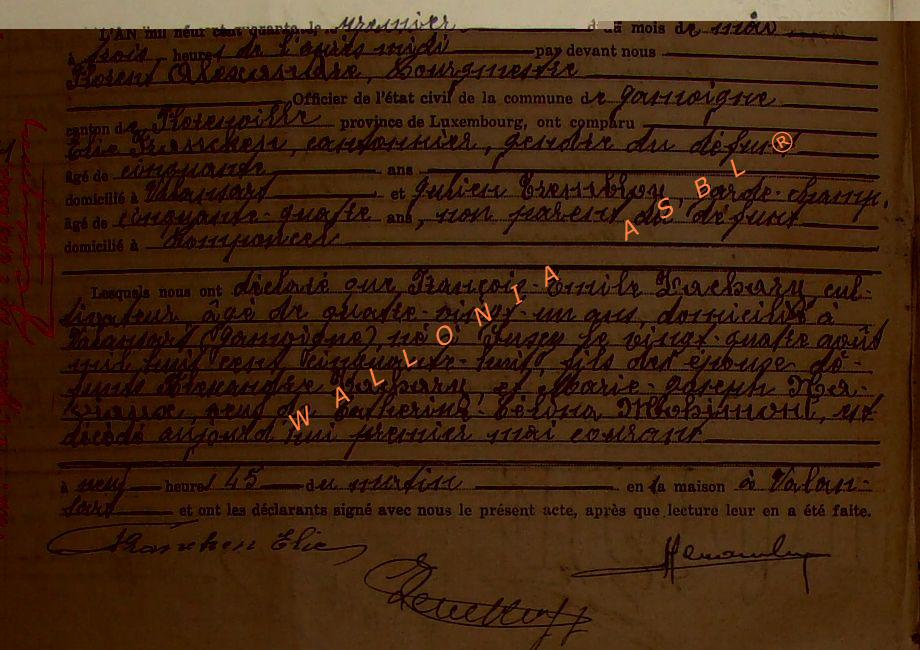 L'AN mil neuf cent quarante, le premier du mois de mai
à trois heures de l'après midi par devant nous
Florent Alexandre, Bourgmestre
Officier de l'état civil de la commune de Jamoigne
canton de Florenville province de Luxembourg, ont comparu
Elie Franchen, cantonnier, gendre du défunt
âgé de cinquante ans
domicilié à Valansart et Julien Tremblou, Garde-champ.
âgé de cinquante-quatre ans, non parent du défunt
domicilié à
Lesquels nous ont déclaré que François-Emile Zachary cul-
tivateur âgé de quatre-vingt-un ans, domicilié à
Valansart (Jamoigne) né à le vingt-quatre août
mil huit cent cinquante-huit, fils des époux dé-
funts Alexandre Zachary et Marie-Joseph
veuf de Catherine est
décédé aujourd'hui premier mai courant
à neuf heures 45 du matin en la maison à Valan-
sart et ont les déclarants signé avec nous le présent acte, après que lecture leur en a été faite.
Franchen Elie
WALLONIA ASBL ®